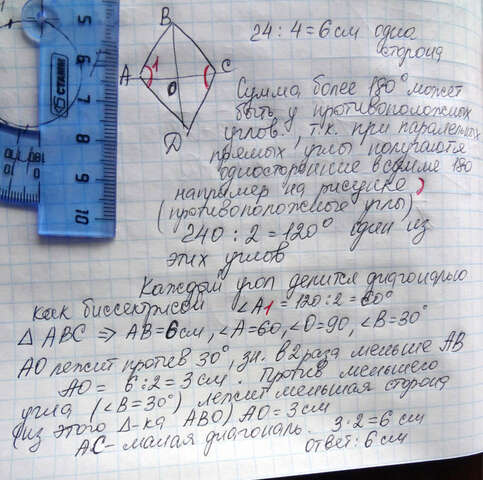 24 : 4 = 6 см одна
сторона
B
A
1
C
O
D
Сумма более 180° может
быть у противоположных
углов, т.к. при паралельных
прямых, углы получаются
односторонние в сумме 180
например на рисунке
(противоположные углы)
240 : 2 = 120° один из
этих углов
Каждый угол делится диагональю
как биссектрисой ∠A1 = 120:2 = 60°
Δ ABC ⇒ AB = 6 см, ∠A=60, ∠O=90, ∠B=30°
AO лежит против 30°, зн. в 2 раза меньше AB
AO = 6:2 = 3 см. Против меньшего
угла (∠B=30°) лежит меньшая сторона
(из этого Δ-ка ABO) AO = 3 см
AC - малая диагональ. 3·2 = 6 см
ответ: 6 см
СТАММ
6
7
8
9
10